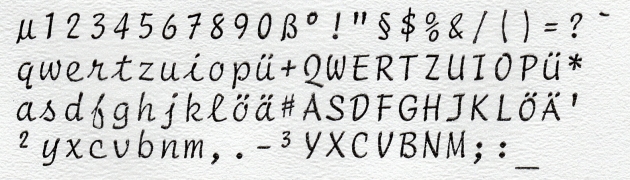 µ1234567890ß°!"§$%&/()=?`
qwertzuiopü+QWERTZUIOPÜ*
asdfghjklöä#ASDFGHJKLÖÄ'
²yxcvbnm,.-³YXCVBNM;:_